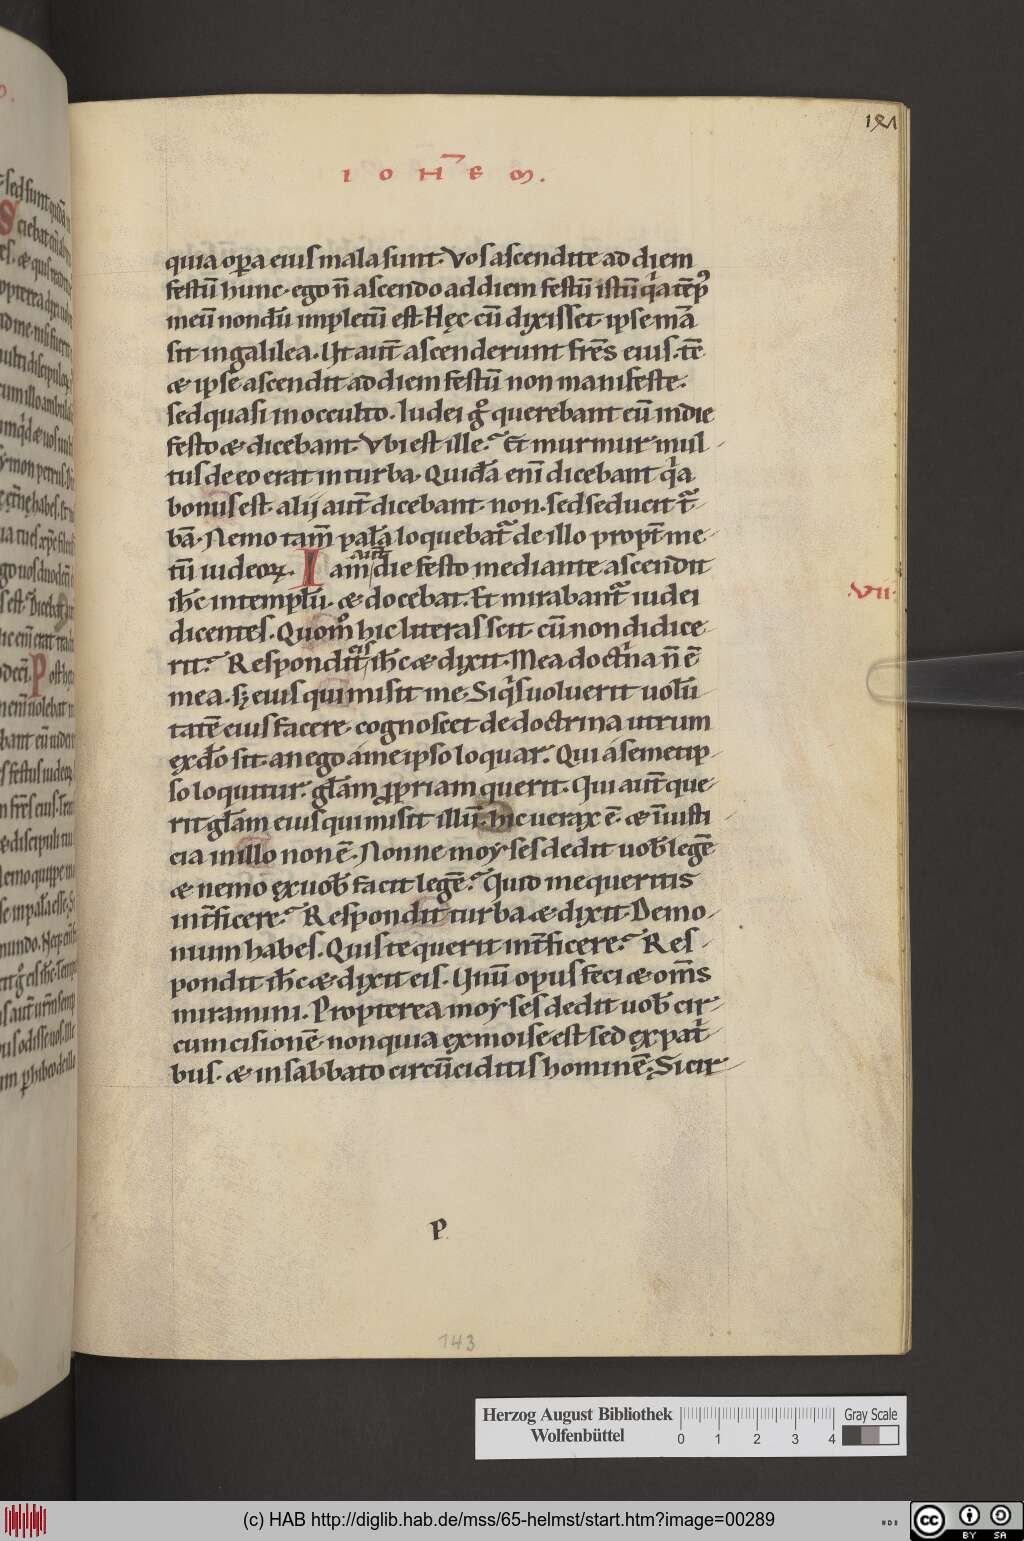 141
IOHEM.
quia opa eius mala sunt. Vos ascendite ad diem
festū hunc. ego n̄ ascendo ad diem festū istū q̇a tēp᷒
meū nondū impletū est. Hęc cū dixisset ipse mā
sit in galilea. Ut aut̄ ascenderunt frēs eius. tē
& ipse ascendit ad diem festū non manifeste.
sed quasi in occulto. Iudei g̊ querebant eū in die
festo & dicebant. Vbi est ille? Et murmur mul
tus de eo erat in turba. Quidā enī dicebant q̇a
bonus est. alij aut̄ dicebant. non. sed seducit t̄
bā. Nemo tam̄ palā loquebat᷑ de illo propt̄ me
tū iudeoꝝ. Iam aut̄ die festo mediante ascendit
ih̄c in templū. & docebat. Et mirabant᷑ iudei
dicentes. Quom̊ hic litteras scit cū non didice
rit? Respondit eis ih̄c & dixit. Mea doct̄na n̄ ē
mea. sꝫ eius qui misit me. Siq̇s uoluerit uolū
tatē eius facere. cognoscet de doctrina utrum
ex dō sit. an ego a me ipso loquar. Qui a semetip
so loquitur. gl̄am ꝓpriam querit. Qui aut̄ que
rit gl̄am eius qui misit illū. hic uerax ē. & iniusti
cia in illo non ē. Nonne moyses dedit uob̄ legē
& nemo ex uob̄ facit legē? Quid me queritis
int̄ficere? Respondit turba & dixit. Demo
nium habes. Quis te querit int̄ficere? Res
pondit ih̄c & dixit eis. Unū opus feci & om̄s
miramini. Propterea moyses dedit uob̄ cir
cumcisionē. non quia ex moise est sed ex pat̄
bus. & in sabbato circūciditis hominē. Si cir
VII.
P
143
Herzog August Bibliothek
Wolfenbüttel
0 1 2 3 4
Gray Scale
(c) HAB http://diglib.hab.de/mss/65-helmst/start.htm?image=00289
cc BY SA